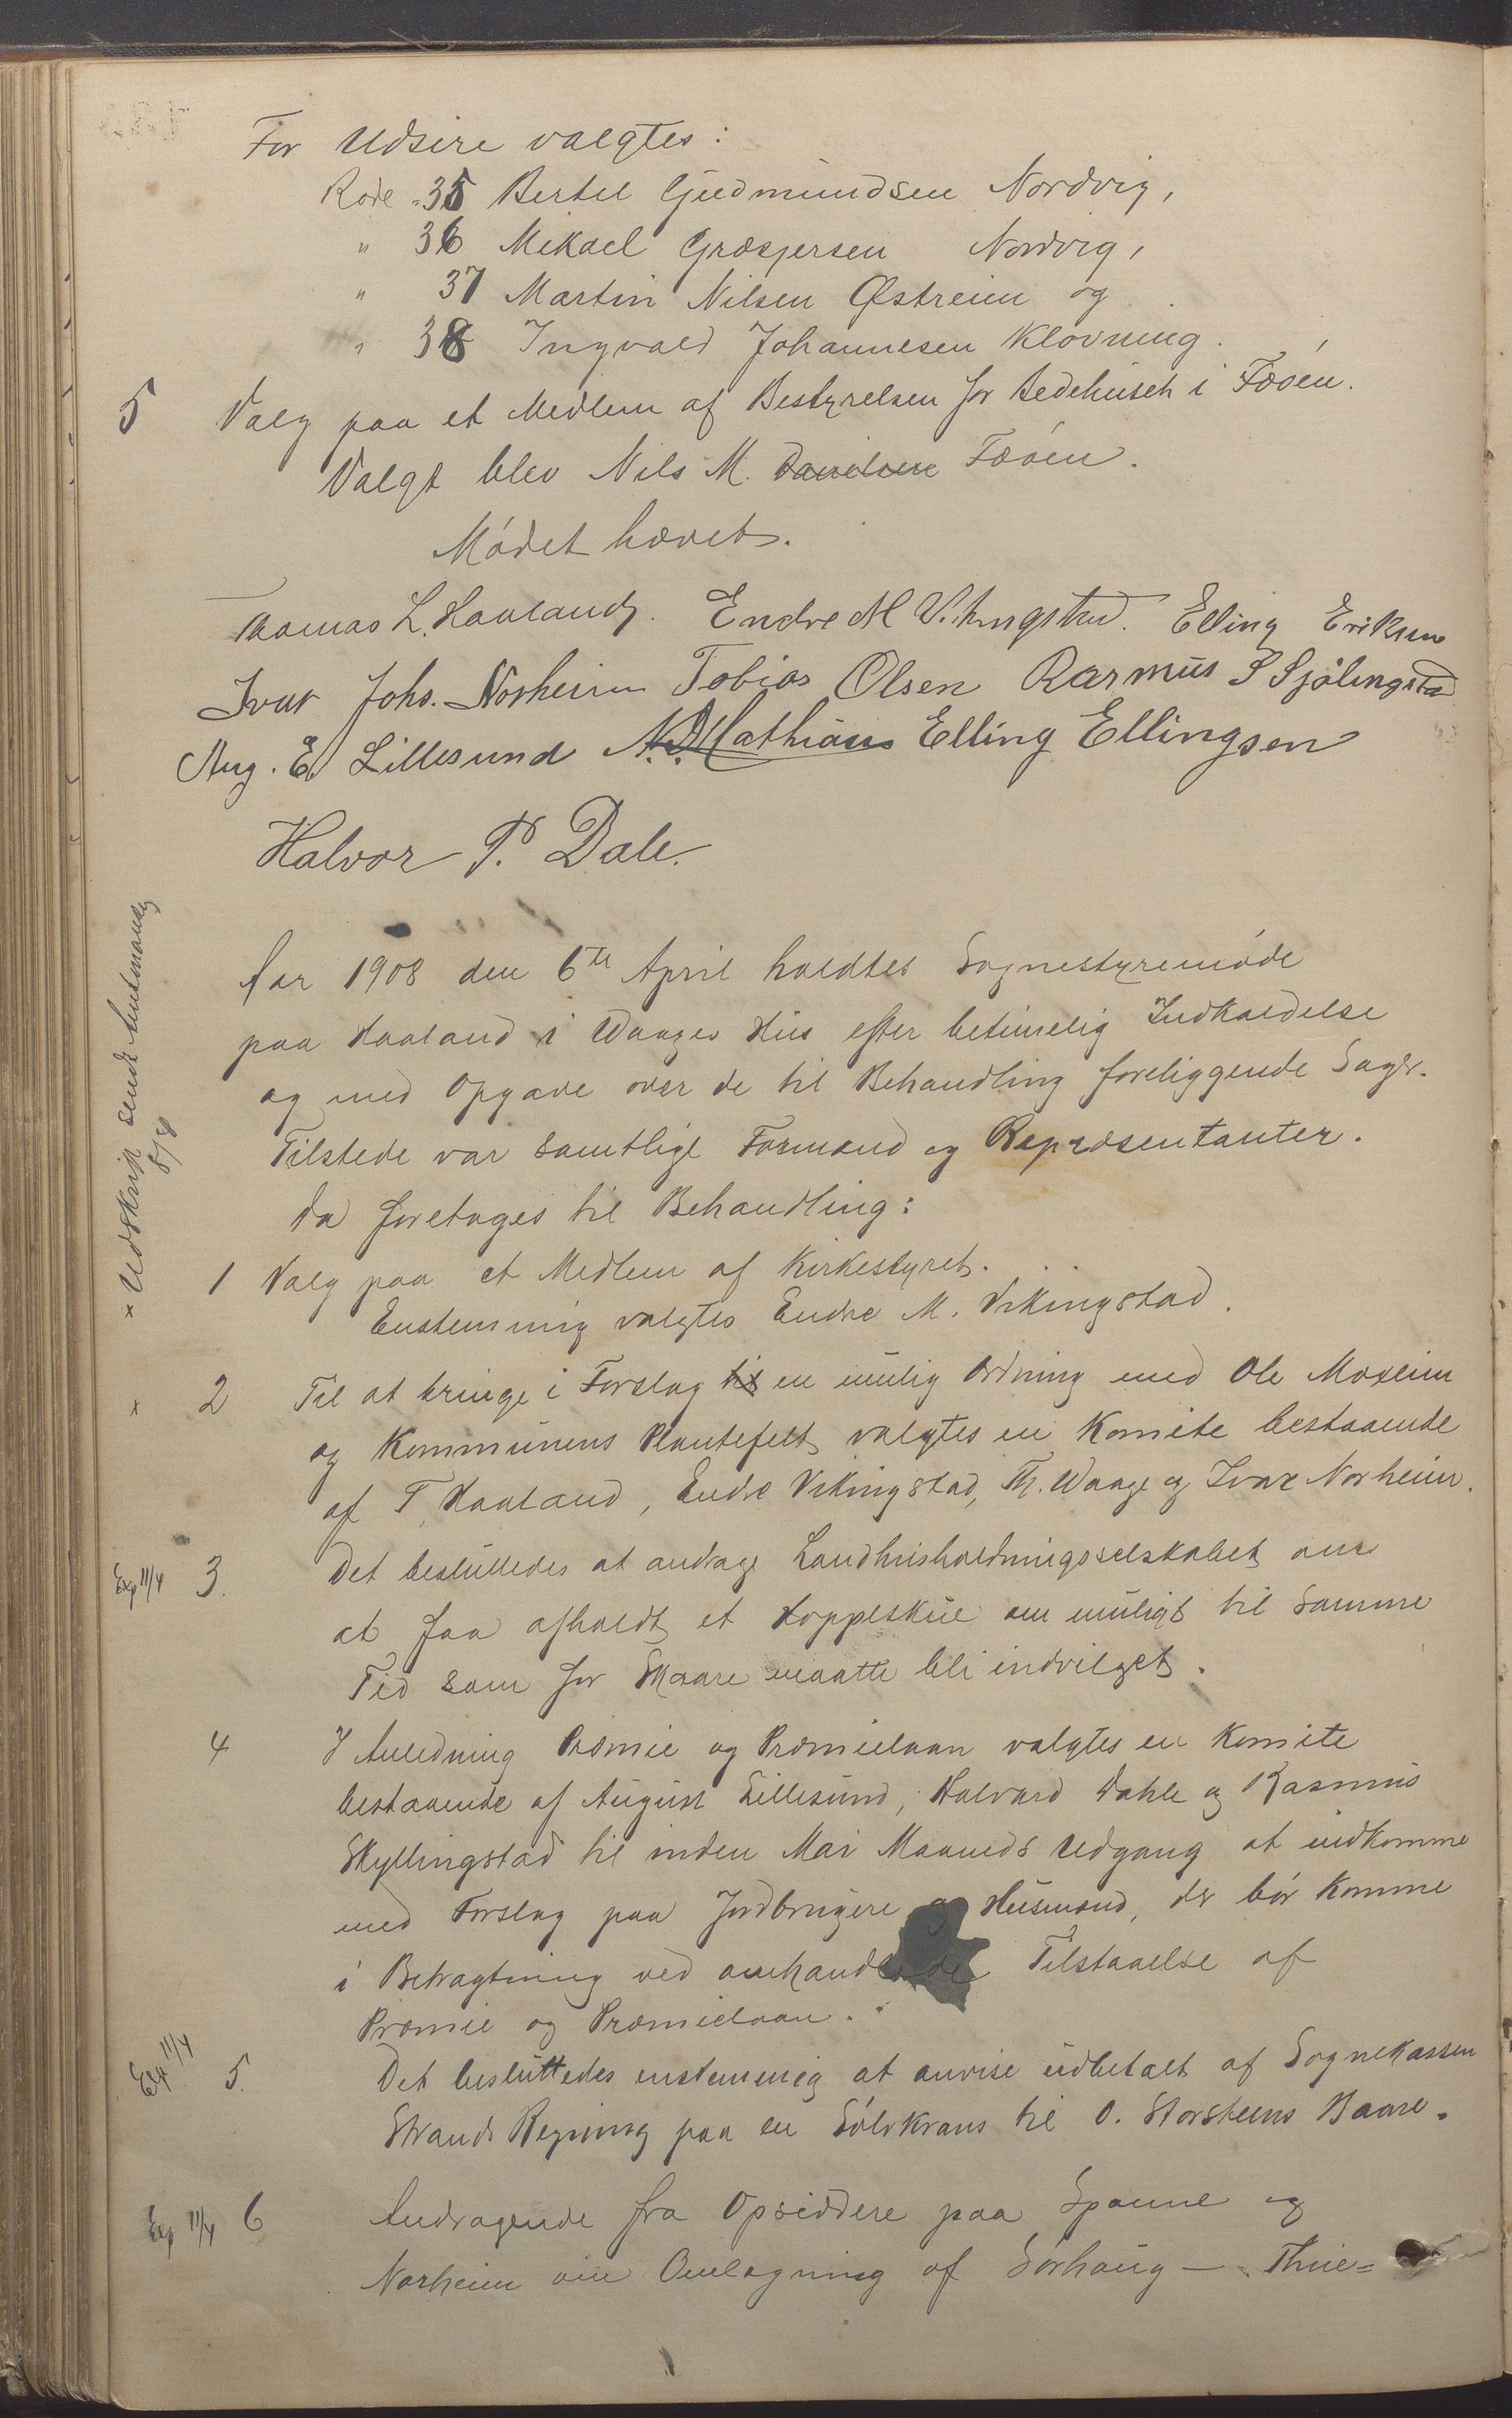 For Udsire valgtes:
Rode 35 Bertel Gudmundsen Nordvig,
" 36 Mikael Græsjersen Nordvig,
" 37 Martin Nilsen Østreim og
" 38 Ingvald Johannesen Klovning.
5 Valg paa et Medlem af Bestyrelsen for Bedehuset i Føøen.
Valgt blev Nils M. Danielsen Føøen.
Mødet hævet.
Thomas L. Haaland. Endre M Vikingstad. Elling Eriksen
Ivar Johs. Norheim Tobias Olsen Rasmus S Sjølingstad
Aug. E. Lillesund N. D. Mathiasen Elling Ellingsen
Halvor P. Dale.
Aar 1908 den 6te April holdtes Sognestyremøde
paa Haaland i Waages Hus efter betimelig Indkaldelse
og med Opgave over de til Behandling foreliggende Sager.
Tilstede var samtlige Formænd og Repræsentanter.
Da foretoges til Behandling:
x Udskrift sendt Amtmanden
8/4
1 Valg paa et Medlem af Kirkestyret.
Enstemmig valgtes Endre M. Vikingstad.
x 2 Til at bringe i Forslag til en mulig Ordning med Ole Moxeim
og Kommunens Plantefelt valgtes en Komite bestaaende
af T. Haaland, Endre Vikingstad, Th. Waage og Ivar Norheim.
Exp 11/4 3. Det besluttedes at andrage Landhusholdningsselskabet om
at faa afholdt et Hoppeskue om muligt til samme
Tid som for Skaare maatte bli indvilget.
4 I Anledning Præmie og Præmielaan valgtes en Komite
bestaaende af August Lillesund, Halvard Dahle og Rasmus
Skyllingstad til inden Mai Maaneds Udgang at indkomme
med Forslag paa Jordbrugere og Husmænd, der bør komme
i Betragtning ved omhandlende Tilstaaelse af
Præmie og Præmielaan.
Exp 11/4 5. Det besluttedes enstemmig at anvise udbetalt af Sognekassen
Strands Regning paa en Sølvkrans til O. Storsteens Baare.
Exp 11/4 6 Andragende fra Opsiddere paa Spanne og
Norheim om Omlægning af Sørhaug — Thue=